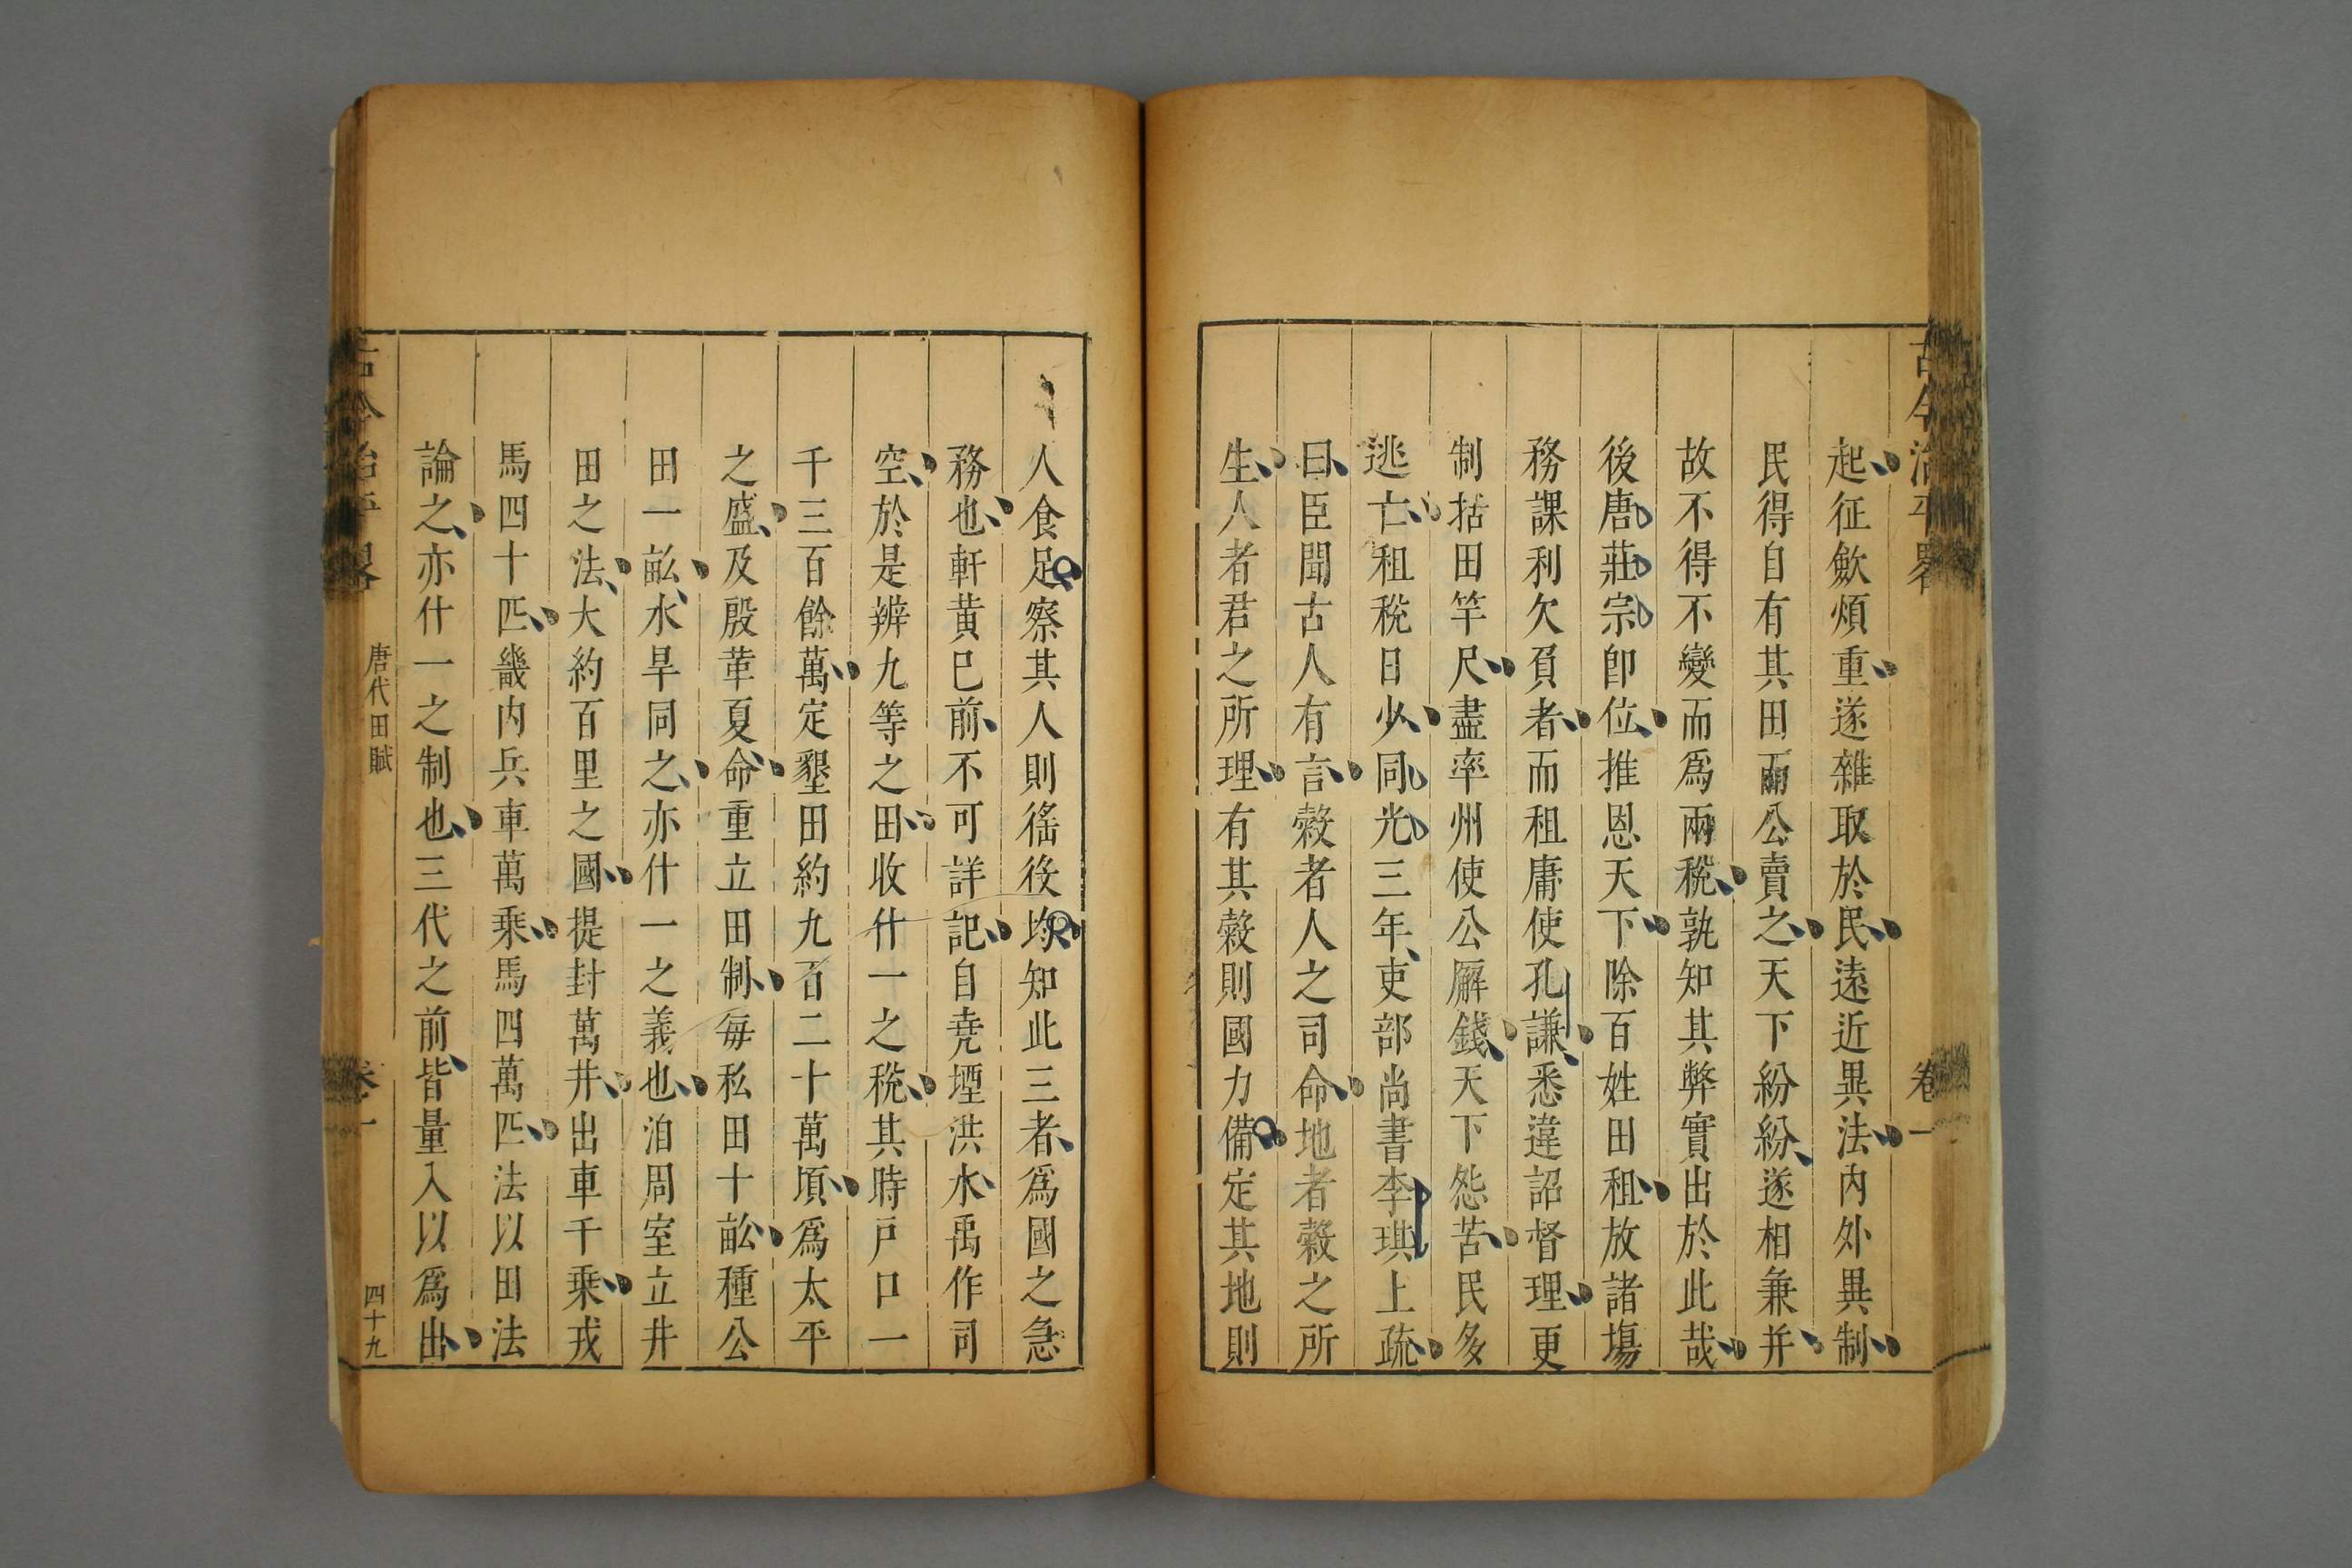 古今治平畧 卷一
起征歛煩重遂雜取於民遠近異法内外異制
民得自有其田而公賣之天下紛紛遂相兼并
故不得不變而爲兩稅孰知其弊實出於此哉
後唐莊宗卽位推恩天下除百姓田租放諸塲
務課利欠負者而租庸使孔謙悉違詔督理更
制括田竿尺盡率州使公廨錢天下怨苦民多
逃亡租稅日少同光三年吏部尚書李琪上疏
曰臣聞古人有言穀者人之司命地者穀之所
生人者君之所理有其穀則國力備定其地則
人食足察其人則徭役均知此三者爲國之急
務也軒黄已前不可詳記自堯堙洪水禹作司
空於是辨九等之田收什一之稅其時戸口一
千三百餘萬定墾田約九百二十萬頃爲太平
之盛及殷革夏命重立田制每私田十畝種公
田一畝水旱同之亦什一之義也洎周室立井
田之法大約百里之國提封萬井出車千乘戎
馬四十匹畿内兵車萬乘馬四萬匹法以田法
論之亦什一之制也三代之前皆量入以爲出
古今治平畧 唐代田賦 卷一 四十九